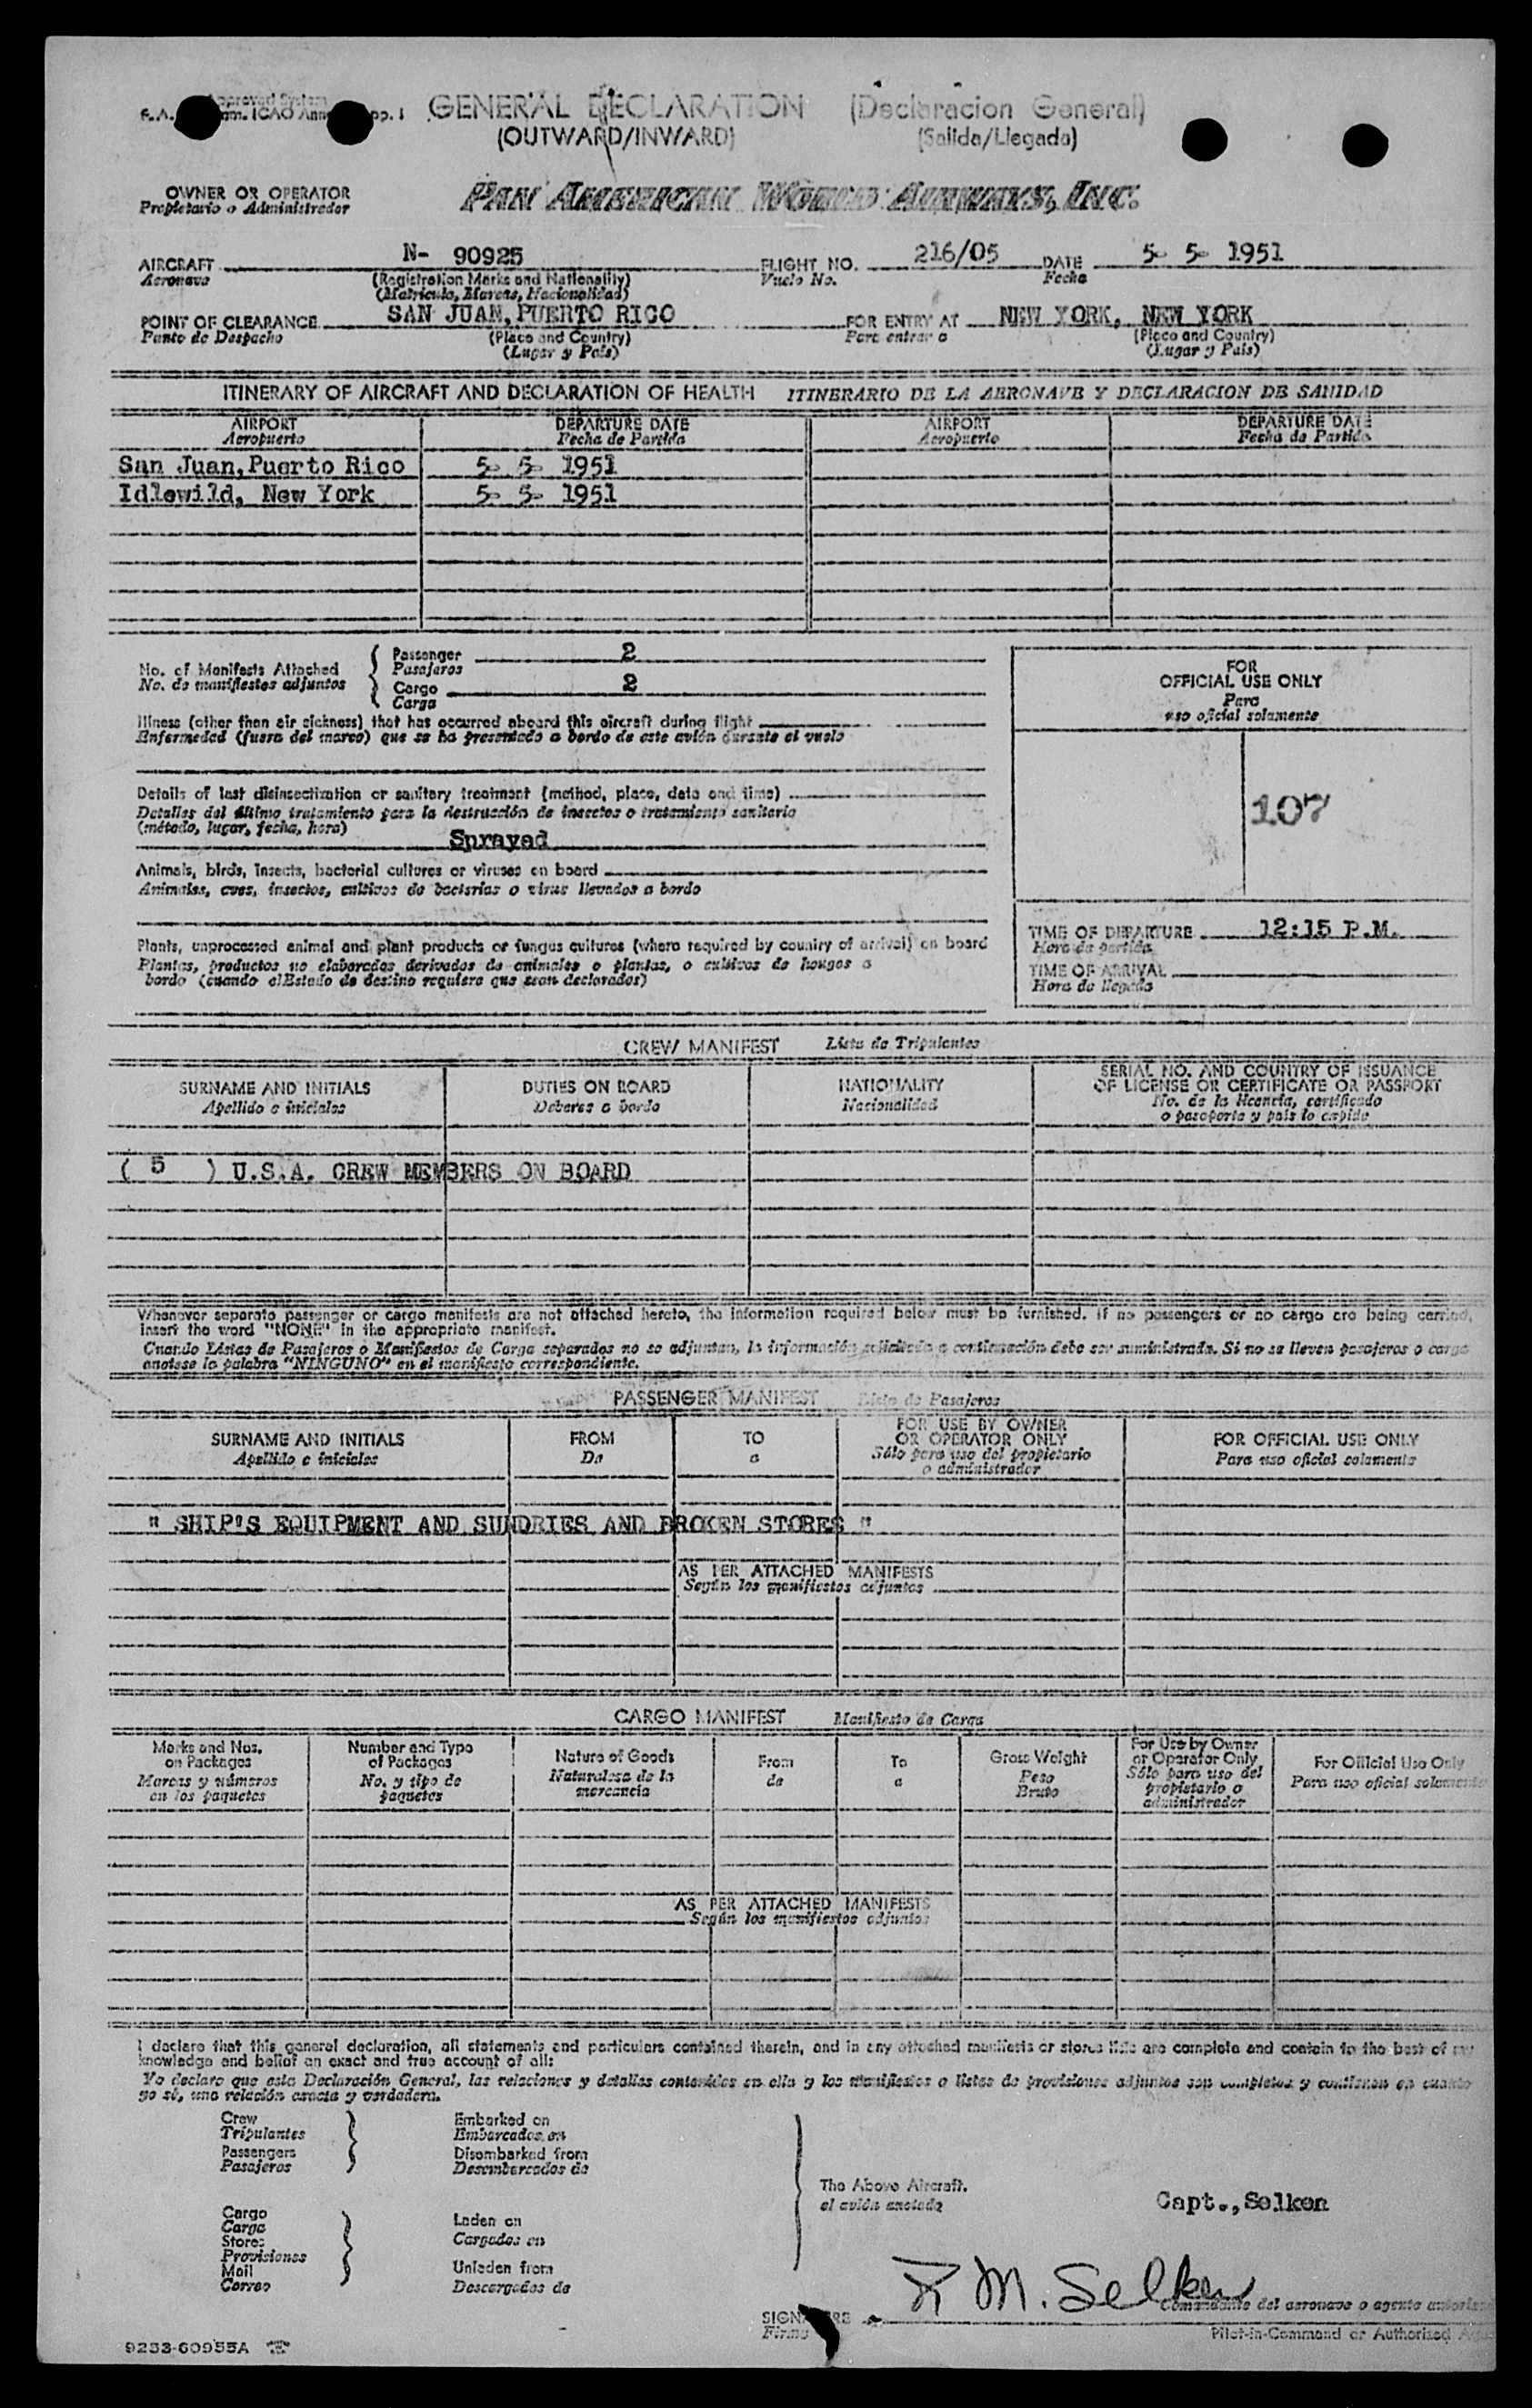 Approved System
GENERAL DECLARATION (Declaracion General)
(OUTWARD/INWARD) (Salida/Llegada)
OWNER OR OPERATOR
Propietario o Administrador
PAN AMERICAN WORLD AIRWAYS, INC.
AIRCRAFT N- 90925 FLIGHT NO. 216/05 DATE 5- 5- 1951
Aeronave (Registration Marks and Nationality) Vuelo No. Fecha
(Matricula, Marcas, Nacionalidad)
POINT OF CLEARANCE SAN JUAN, PUERTO RICO FOR ENTRY AT NEW YORK, NEW YORK
Punto de Despacho (Place and Country) Para entrar a (Place and Country)
(Lugar y País) (Lugar y País)
ITINERARY OF AIRCRAFT AND DECLARATION OF HEALTH ITINERARIO DE LA AERONAVE Y DECLARACION DE SANIDAD
AIRPORT DEPARTURE DATE AIRPORT DEPARTURE DATE
Aeropuerto Fecha de Partida Aeropuerto Fecha de Partida
San Juan, Puerto Rico 5- 5- 1951
Idlewild, New York 5- 5- 1951
No. of Manifests Attached
No. de manifiestos adjuntos
Passenger 2
Pasajeros
Cargo 2
Carga
Illness (other than air sickness) that has occurred aboard this aircraft during flight
Enfermedad (fuera del mareo) que se ha presentado a bordo de este avión durante el vuelo
Details of last disinsectization or sanitary treatment (method, place, date and time)
Detalles del último tratamiento para la destrucción de insectos o tratamiento sanitario
(método, lugar, fecha, hora)
Sprayed
Animals, birds, insects, bacterial cultures or viruses on board
Animales, aves, insectos, cultivos de bacterias o virus llevados a bordo
Plants, unprocessed animal and plant products or fungus cultures (where required by country of arrival) on board
Plantas, productos no elaborados derivados de animales o plantas, o cultivos de hongos a
bordo (cuando el Estado de destino requiera que sean declarados)
FOR
OFFICIAL USE ONLY
Para
uso oficial solamente
107
TIME OF DEPARTURE 12:15 P.M.
Hora de partida
TIME OF ARRIVAL
Hora de llegada
CREW MANIFEST Lista de Tripulantes
SURNAME AND INITIALS DUTIES ON BOARD NATIONALITY SERIAL NO. AND COUNTRY OF ISSUANCE
OF LICENSE OR CERTIFICATE OR PASSPORT
Apellido e iniciales Deberes a bordo Nacionalidad No. de la licencia, certificado
o pasaporte y país lo expide
( 5 ) U.S.A. CREW MEMBERS ON BOARD
Whenever separate passenger or cargo manifests are not attached hereto, the information required below must be furnished. If no passengers or no cargo are being carried,
insert the word "NONE" in the appropriate manifest.
Cuando Listas de Pasajeros o Manifiestos de Carga separados no se adjuntan, la información solicitada a continuación debe ser suministrada. Si no se lleven pasajeros o carga
anótese la palabra "NINGUNO" en el manifiesto correspondiente.
PASSENGER MANIFEST Lista de Pasajeros
SURNAME AND INITIALS FROM TO FOR USE BY OWNER
OR OPERATOR ONLY FOR OFFICIAL USE ONLY
Apellido e iniciales De a Sólo para uso del propietario
o administrador Para uso oficial solamente
" SHIP'S EQUIPMENT AND SUNDRIES AND BROKEN STORES "
AS PER ATTACHED MANIFESTS
Según los manifiestos adjuntos
CARGO MANIFEST Manifiesto de Carga
Marks and Nos.
on Packages
Marcas y números
en los paquetes
Number and Type
of Packages
No. y tipo de
paquetes
Nature of Goods
Naturaleza de la
mercancia
From
de
To
a
Gross Weight
Peso
Bruto
For Use by Owner
or Operator Only
Sólo para uso del
propietario o
administrador
For Official Use Only
Para uso oficial solamente
AS PER ATTACHED MANIFESTS
Según los manifiestos adjuntos
I declare that this general declaration, all statements and particulars contained therein, and in any attached manifests or stores lists are complete and contain to the best of my
knowledge and belief an exact and true account of all:
Yo declaro que esta Declaración General, las relaciones y detalles contenidos en ella y los manifiestos o listas de provisiones adjuntos son completos y contienen en cuanto
yo sé, una relación exacta y verdadera.
Crew
Tripulantes
Passengers
Pasajeros
Embarked on
Embarcados en
Disembarked from
Desembarcados de
Cargo
Carga
Stores
Provisiones
Mail
Correo
Laden on
Cargados en
Unladen from
Descargados de
The Above Aircraft.
el avión anotado
Capt., Selken
M. Selken
SIGNATURE
Firma
Comandante del aeronave o agente
Pilot-in-Command or Authorized
9253-60955A